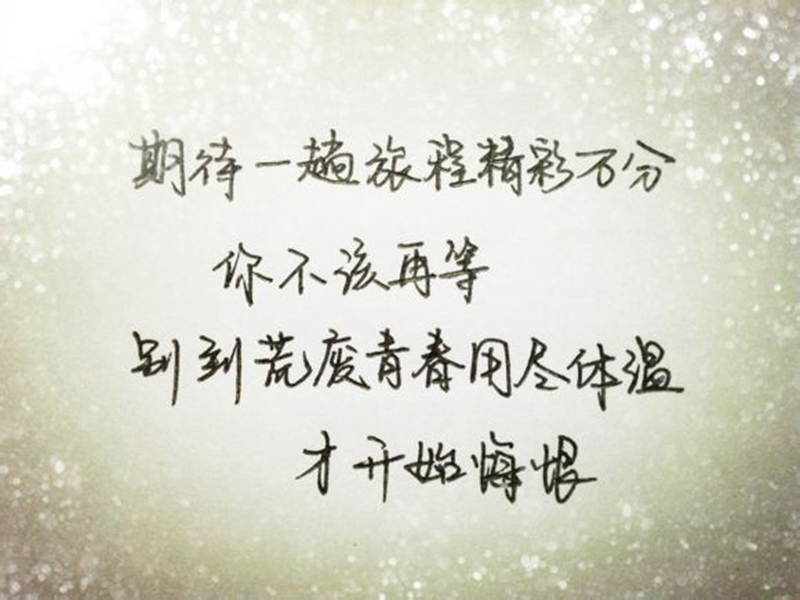 期待一趟旅程精彩万分
你不该再等
别到荒废青春用尽体温
才开始悔恨